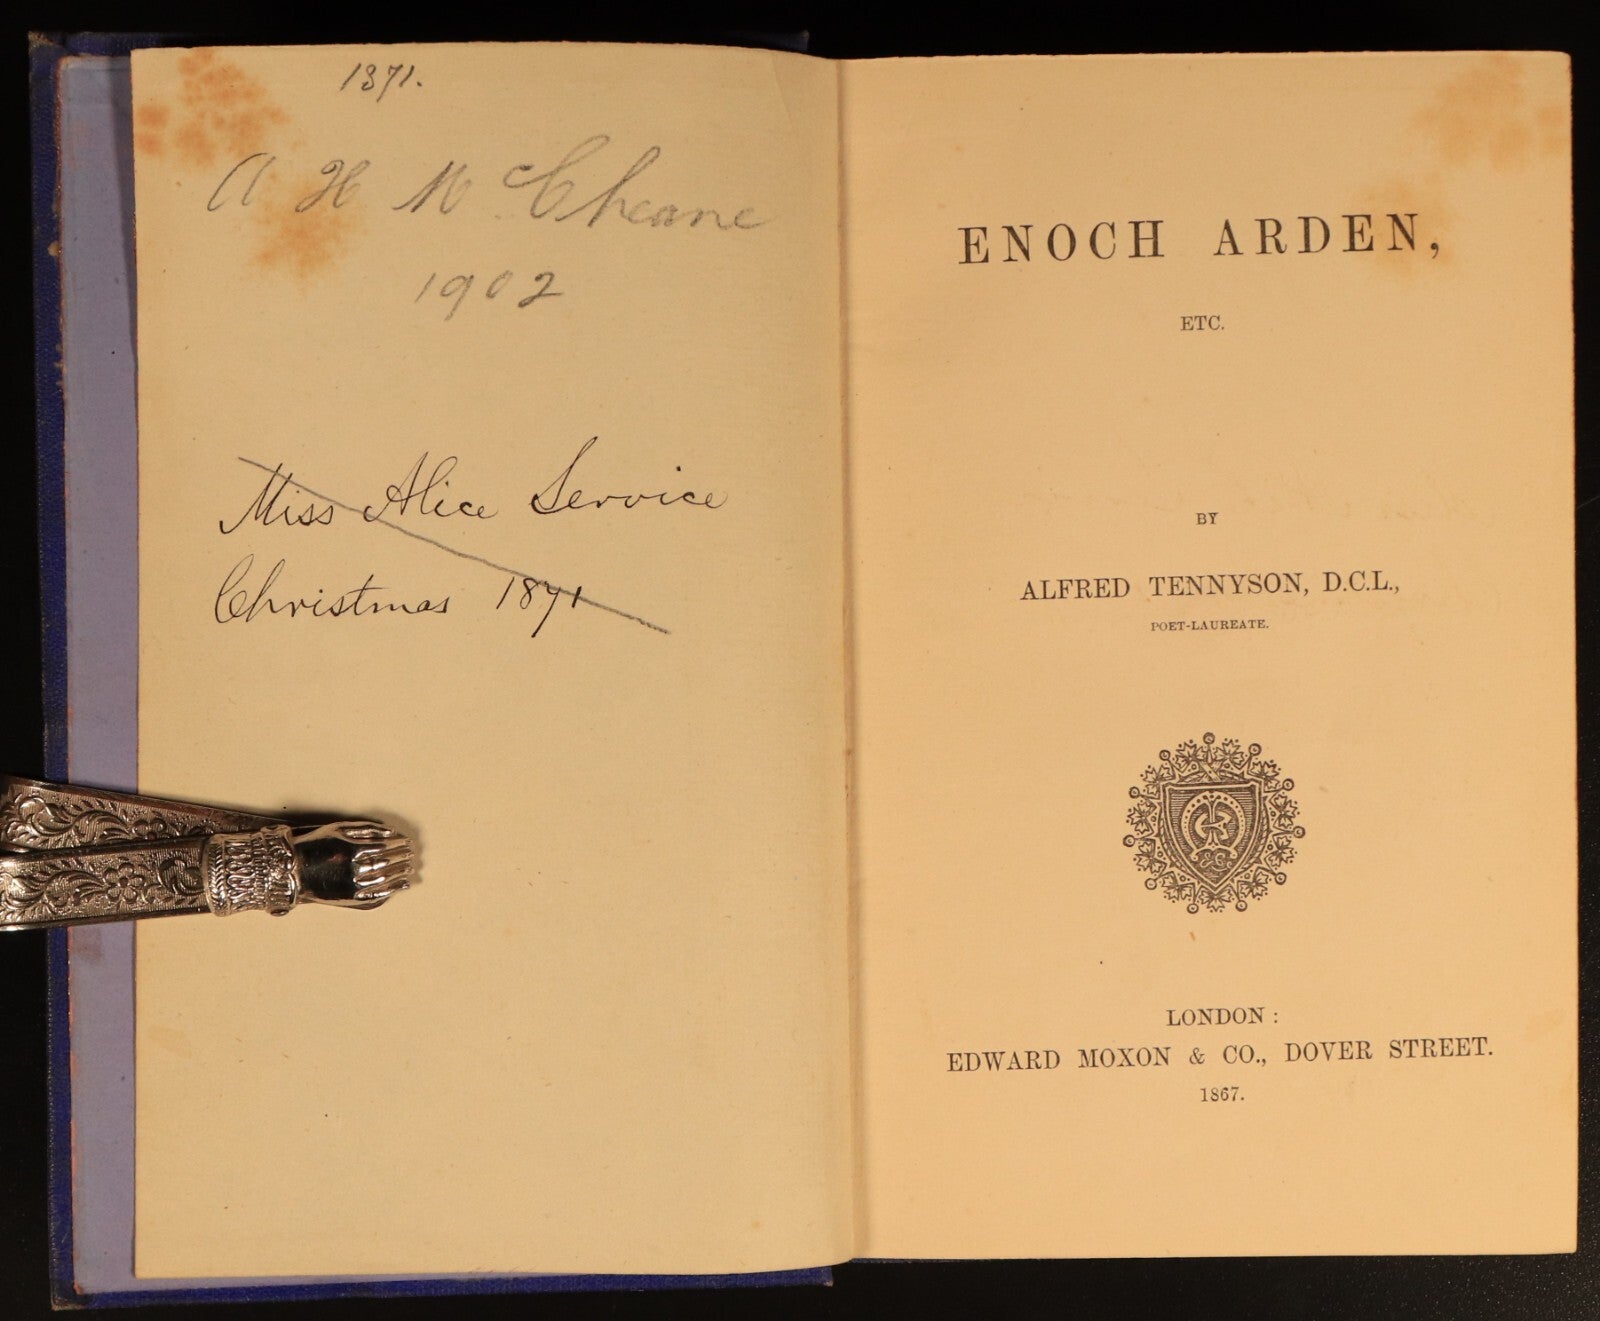 1871.
A H McCheane
1902
Miss Alice Service
Christmas 1871
ENOCH ARDEN,
ETC.
BY
ALFRED TENNYSON, D.C.L.,
POET-LAUREATE.
LONDON :
EDWARD MOXON & CO., DOVER STREET.
1867.